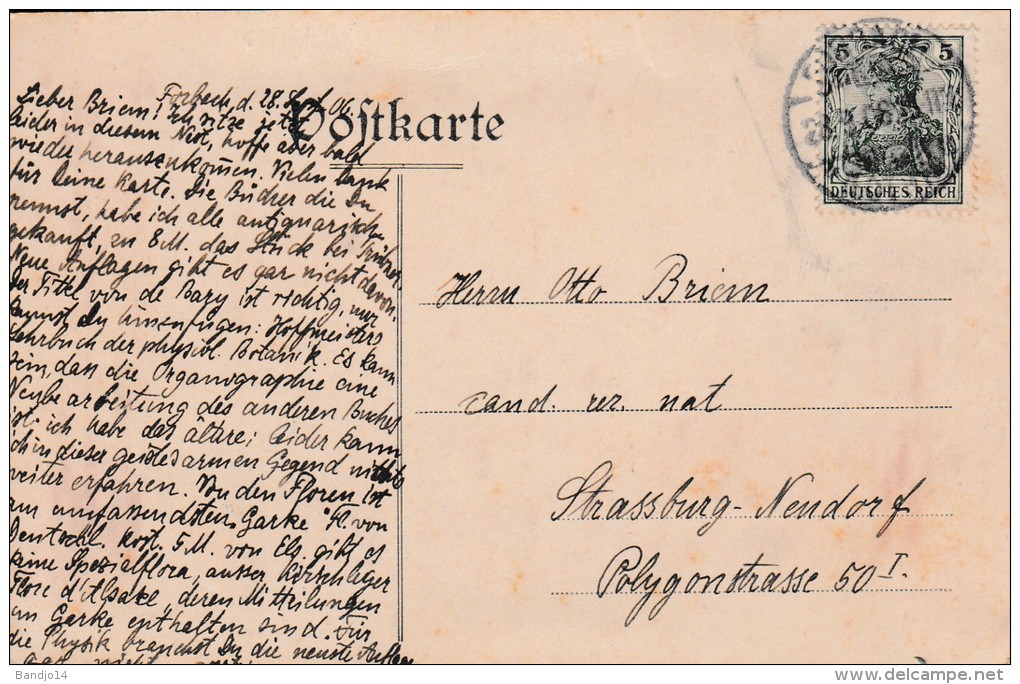 Postkarte
5 5
DEUTSCHES REICH
Forbach, d. 28. Sept 06
Lieber Briem! Ich sitze jetzt
leider in diesem Nest, hoffe aber bald
wieder herauszukommen. Vielen Dank
für Deine Karte. Die Bücher die Du
nennst, habe ich alle antiquarisch
gekauft, zu 8 M. das Stück bei
Neue Auflagen gibt es gar nicht davon.
Der Titel von de Bary ist richtig, nur
kannst Du hinzufügen: Hoffmeisters
Lehrbuch der physiol. Botanik. Es kann
sein, dass die Organographie eine
Neubearbeitung des anderen Buches
ist. ich habe das ältere; leider kann
ich in dieser geistesarmen Gegend nichts
weiter erfahren. Von den Floren ist
am umfassendsten Garke Fl. von
Deutschl. kost. 5 M. von Els. gibt es
keine Spezialflora, ausser Kirschleger
Flore d'Alsace, deren Mitteilungen
in Garke enthalten sind. Für
die Physik brauchst Du die neuste Auflage
Herrn Otto Briem
cand. rer. nat
Strassburg-Neudorf
Polygonstrasse 50 I.
Bandjo14
delcampe.net